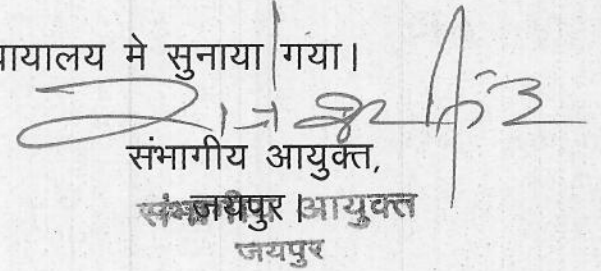 यायालय मे सुनाया गया।
संभागीय आयुक्त,
जयपुर।
संभागीय आयुक्त
जयपुर